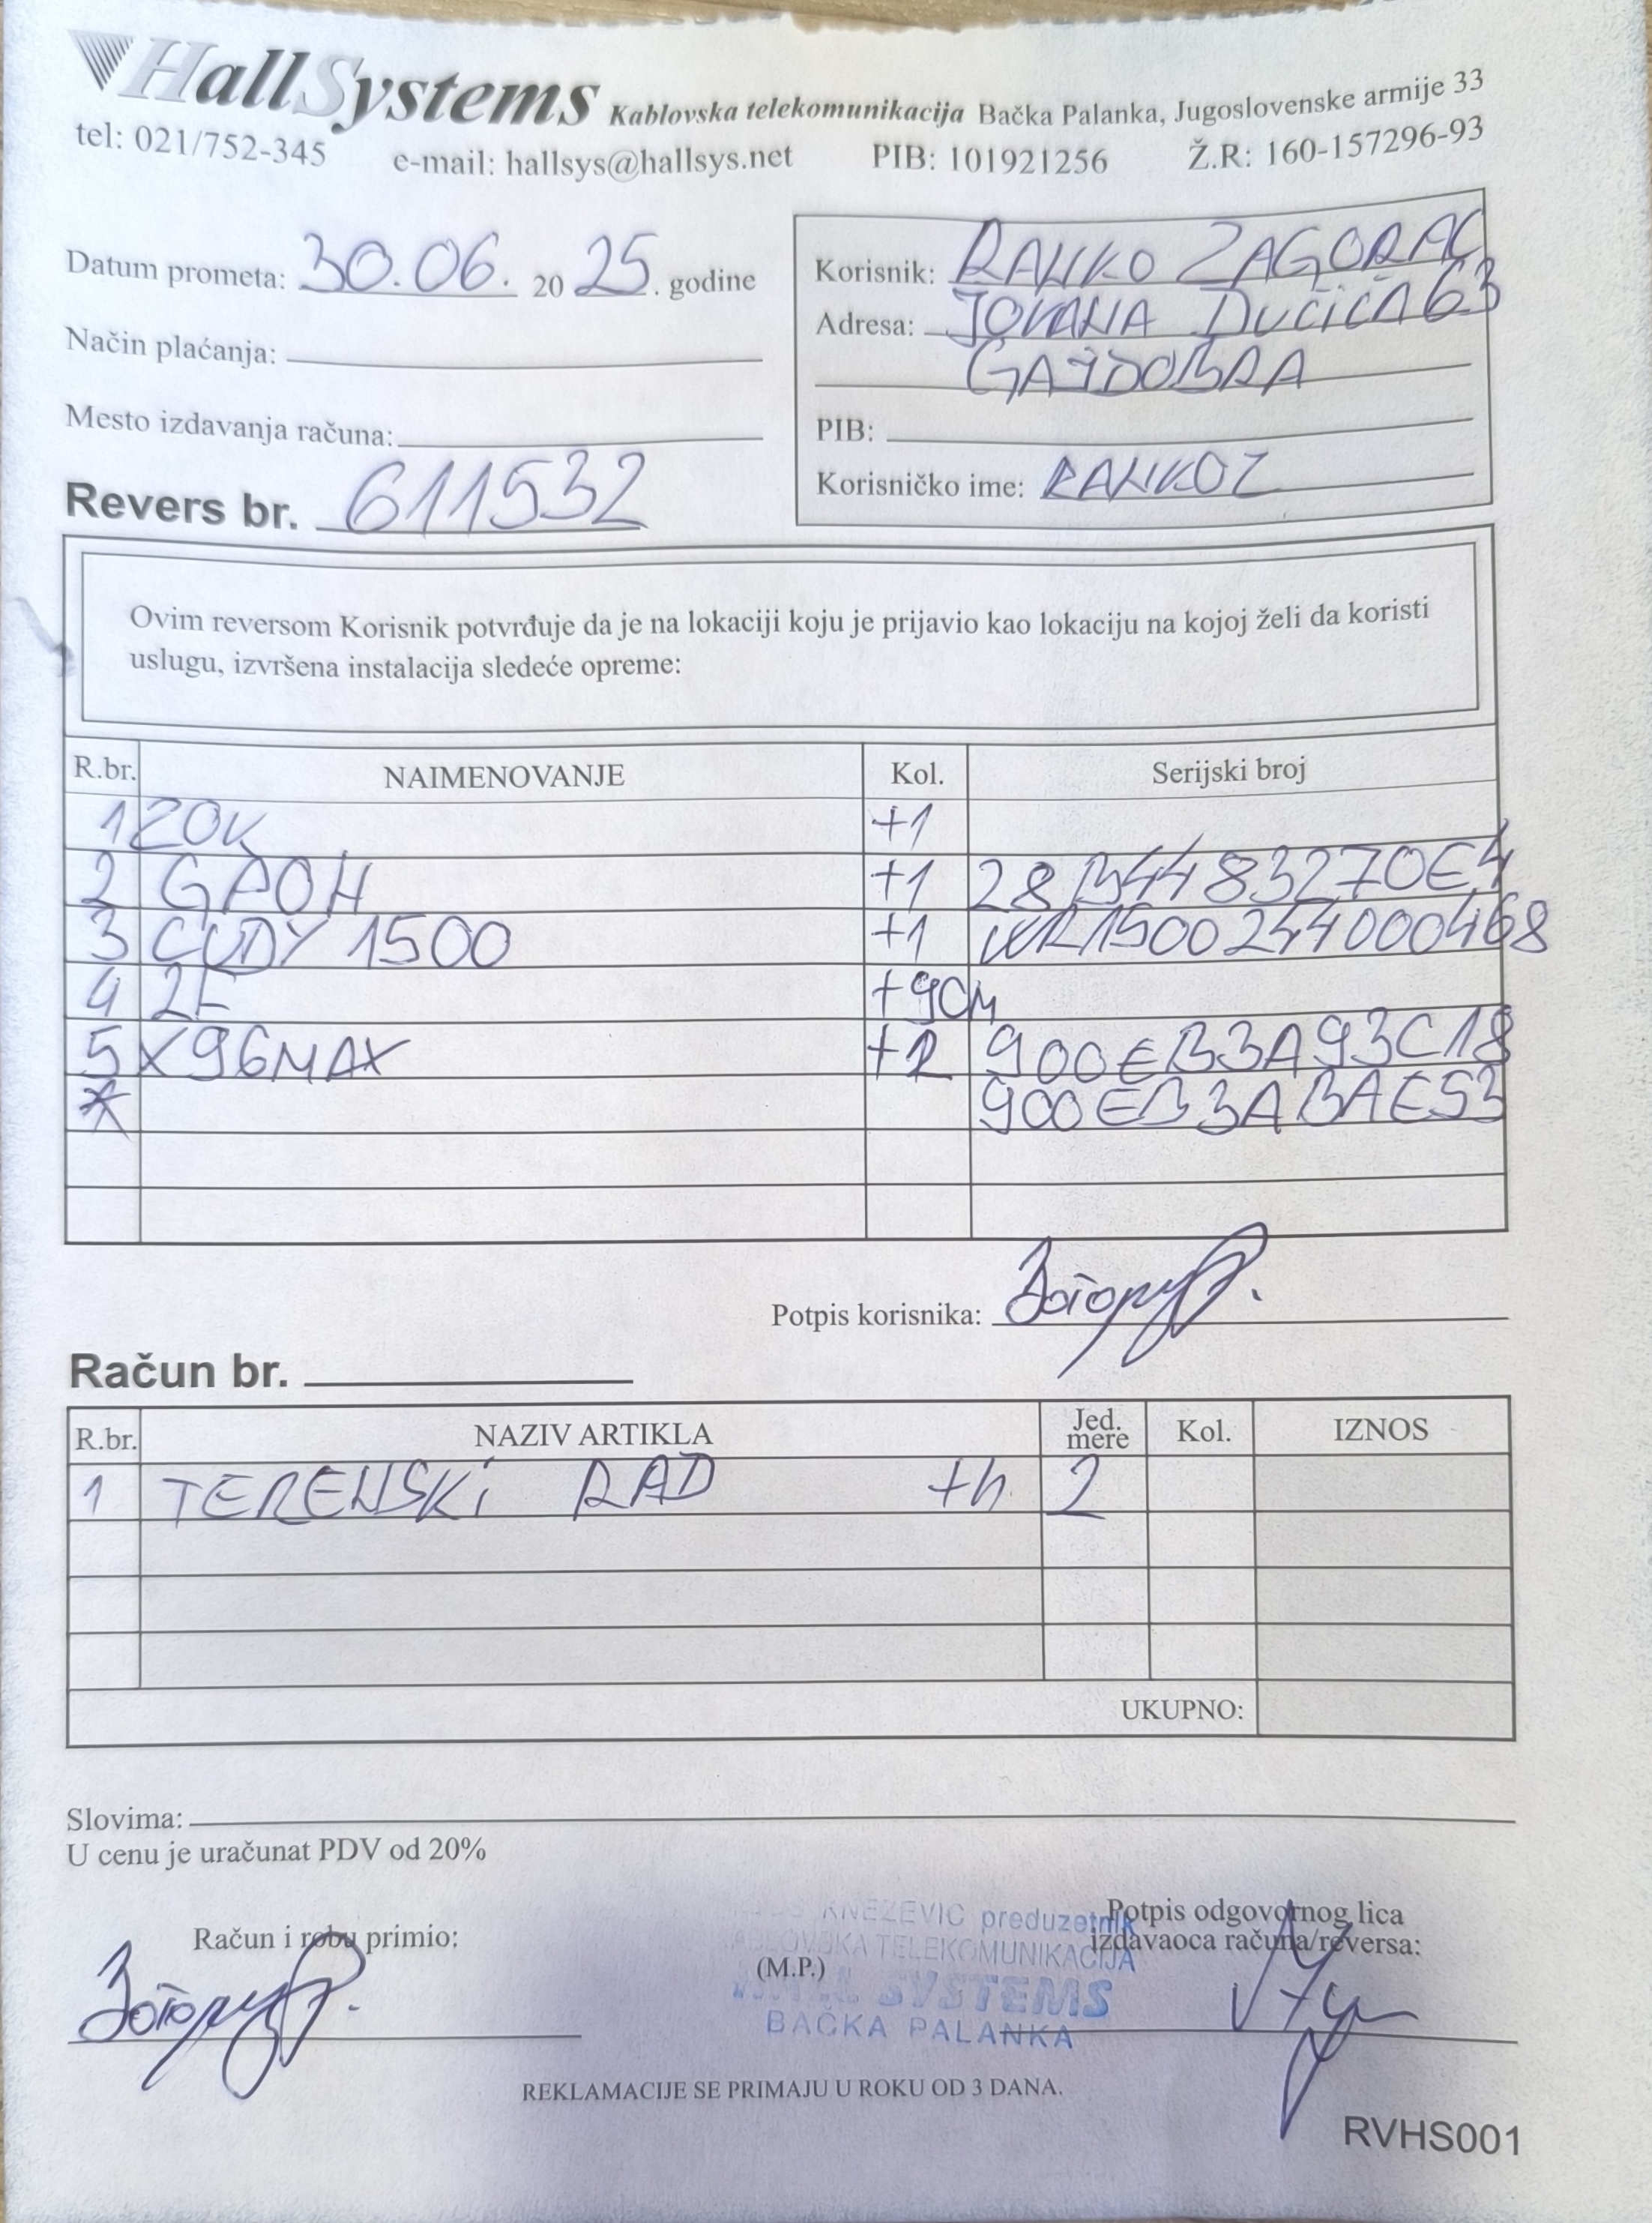 HallSystems Kablovska telekomunikacija Bačka Palanka, Jugoslovenske armije 33
tel: 021/752-345 e-mail: hallsys@hallsys.net PIB: 101921256 Ž.R: 160-157296-93
Datum prometa: 30.06. 2025. godine
Način plaćanja:
Mesto izdavanja računa:
Revers br. 611532
Korisnik: RANKO ZAGORAC
Adresa: JOVANA DUČIĆA 63
GAJDOBRA
PIB:
Korisničko ime: RANKOZ
Ovim reversom Korisnik potvrđuje da je na lokaciji koju je prijavio kao lokaciju na kojoj želi da koristi
uslugu, izvršena instalacija sledeće opreme:
R.br. NAIMENOVANJE Kol. Serijski broj
1 ZOK +1
2 GPON +1 28B4483270E4
3 CUDY 1500 +1 WR1500244000468
4 2F +90M
5 X96MAX +2 900EB3A93C18
* 900EB3ABAE53
Potpis korisnika:
Račun br.
R.br. NAZIV ARTIKLA Jed. mere Kol. IZNOS
1 TERENSKI RAD +h 2
UKUPNO:
Slovima:
U cenu je uračunat PDV od 20%
Račun i robu primio:
(M.P.)
KNEZEVIC preduzetnik
KABLOVSKA TELEKOMUNIKACIJA
HALL SYSTEMS
BAČKA PALANKA
Potpis odgovornog lica
izdavaoca računa/reversa:
REKLAMACIJE SE PRIMAJU U ROKU OD 3 DANA.
RVHS001